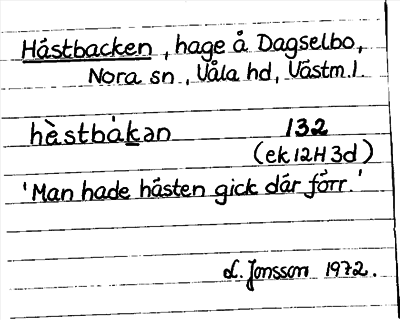 Hästbacken, hage å Dagselbo,
Nora sn., Våla hd, Västm. l.
hèstbàkan 132
(ek 12H 3d)
'Man hade hästen gick där förr.'
L. Jonsson 1972.